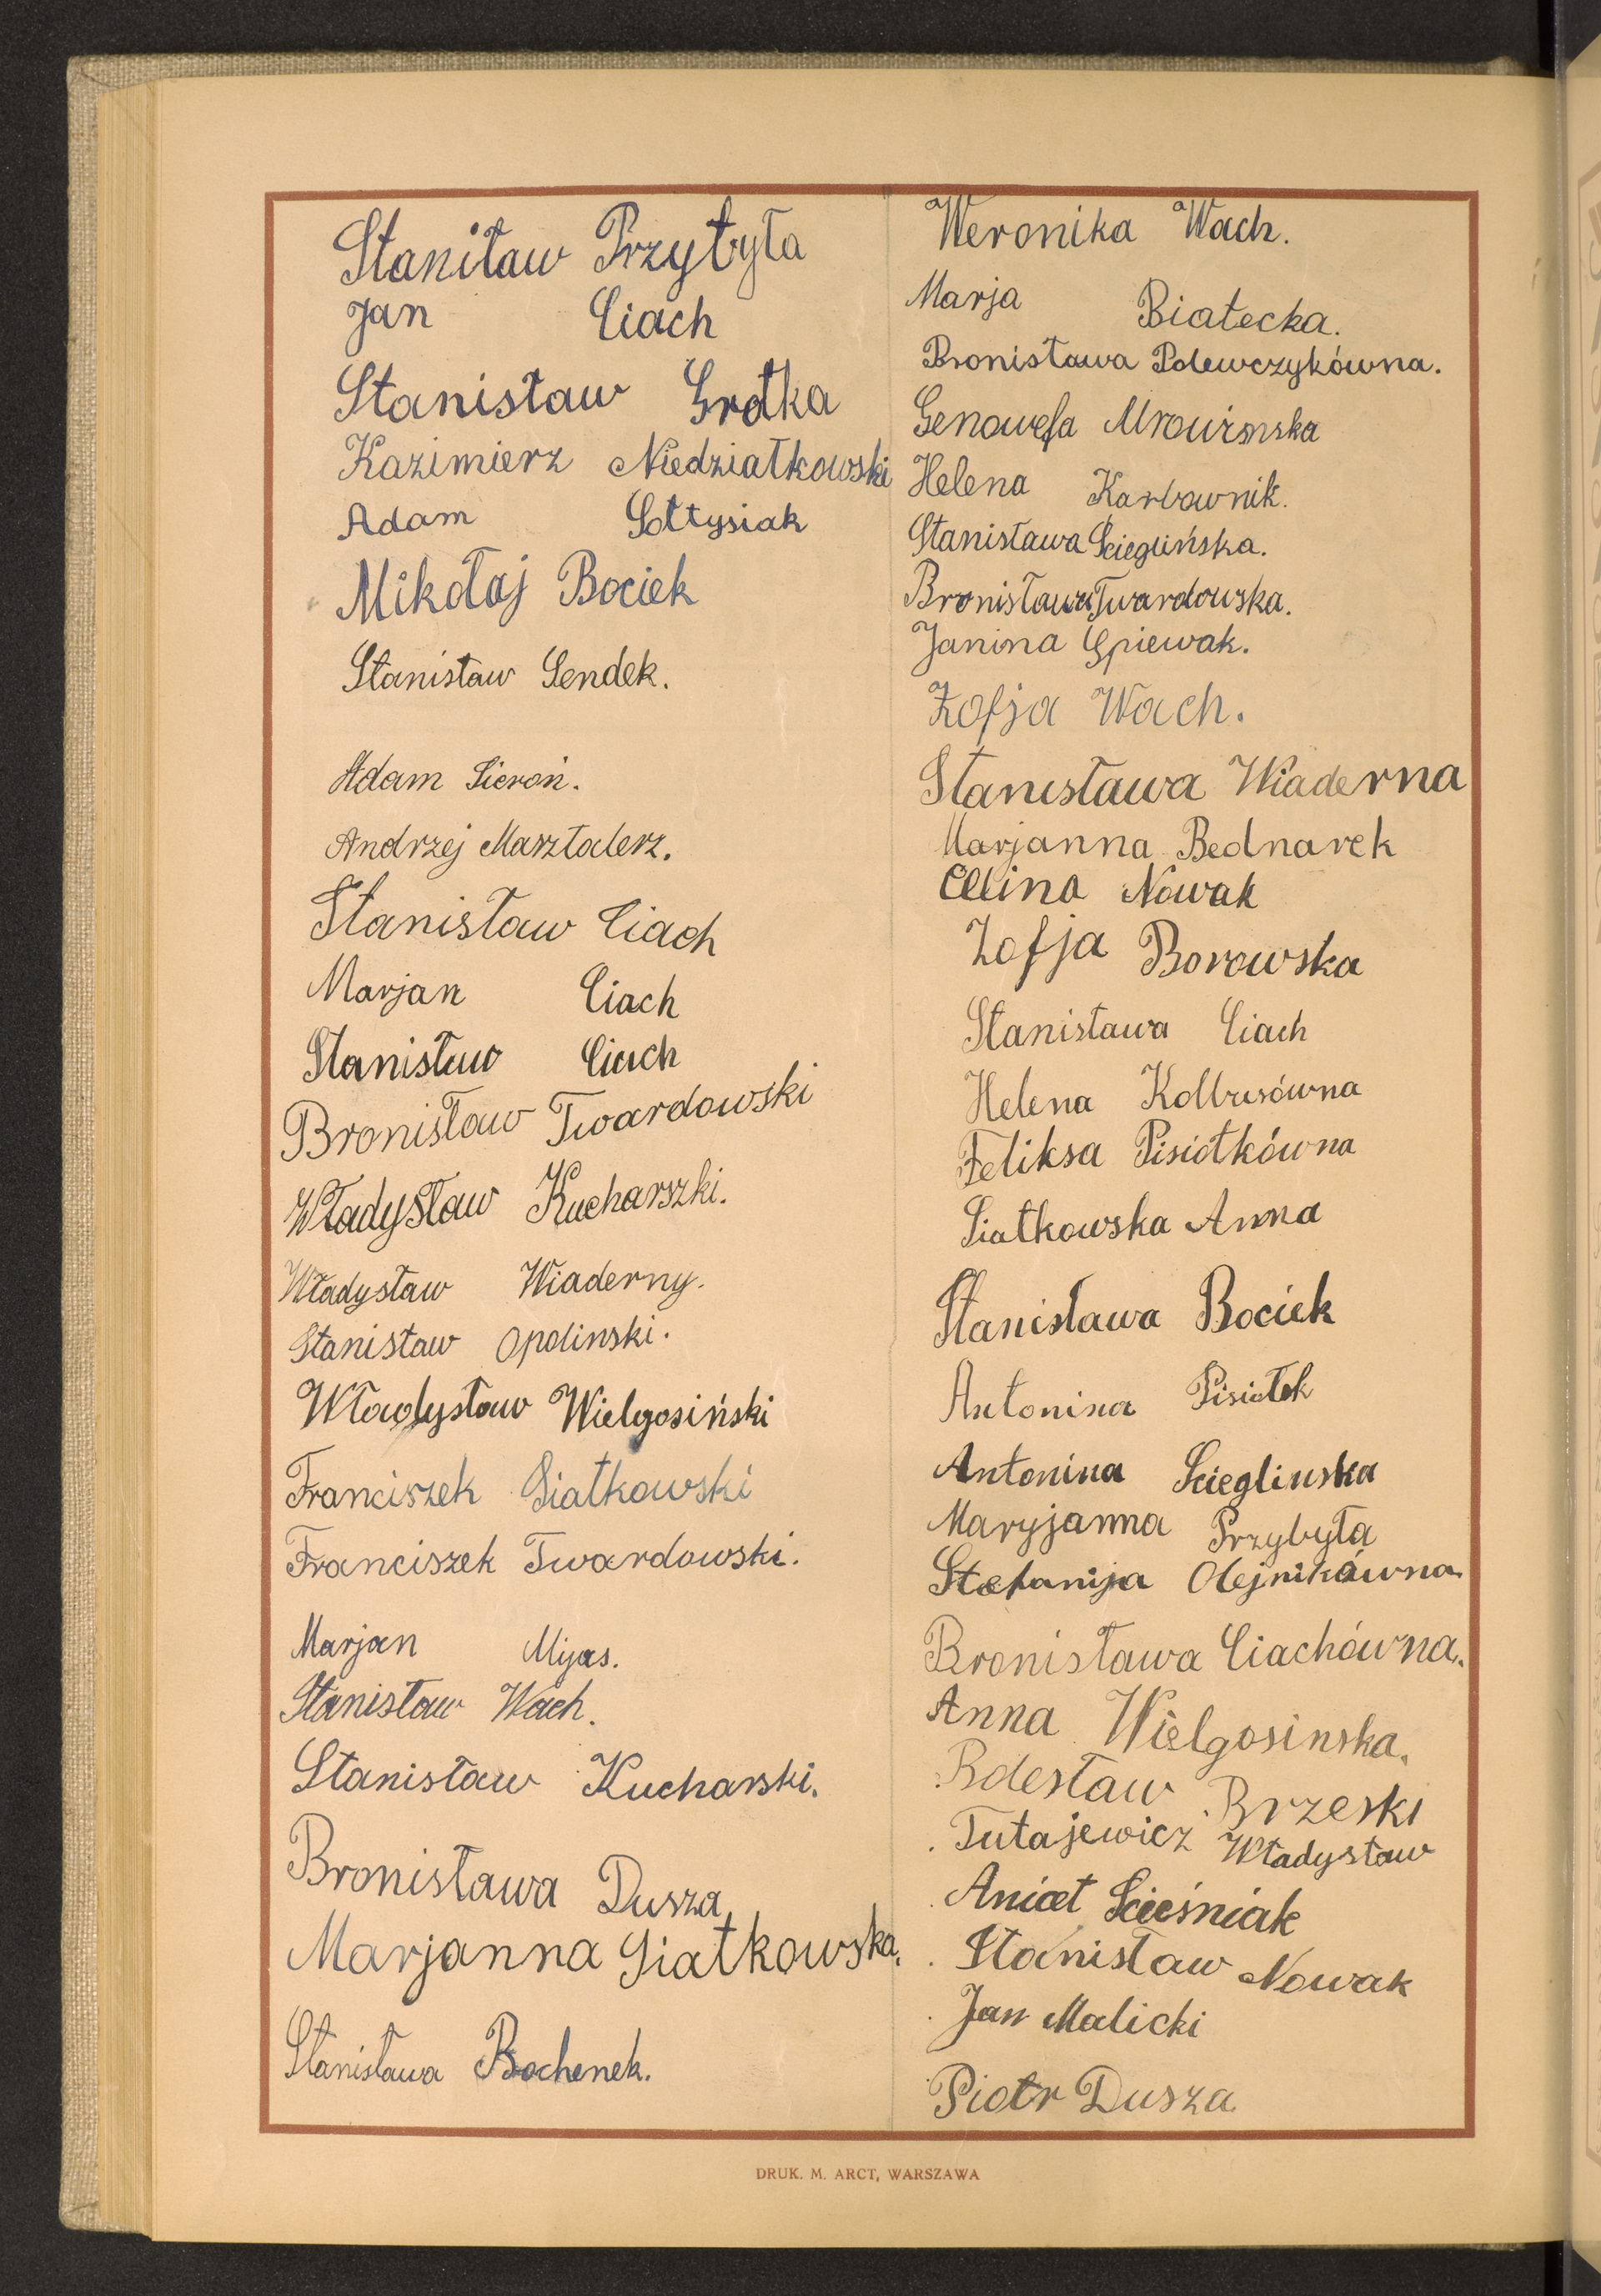 Staniław Przybyła
Jan Ciach
Stanisław Grotka
Kazimierz Niedziałkowski
Adam Sołtysiak
Mikołaj Bociek
Stanisław Sendek.
Adam Sieroń.
Andrzej Marztalerz.
Stanisław Ciach
Marjan Ciach
Stanisław Ciach
Bronisław Twardowski
Władysław Kucharszki.
Władysław Wiaderny.
Stanisław Opolinski.
Władysław Wielgosiński
Franciszek Siatkowski
Franciszek Twardowski.
Marjan Mijas.
Stanisław Wach.
Stanisław Kucharski.
Bronisława Dusza
Marjanna Siatkowska.
Stanisława Bochenek.
Weronika Wach.
Marja Białecka.
Bronisława Polewczykówna.
Genowefa
Helena Karbownik.
Stanisława Ścieglińska.
Bronisława Twardowska.
Janina Śpiewak.
Zofja Wach.
Stanisława Wiaderna
Marjanna Bednarek
Celina Nowak
Zofja Borowska
Stanisława Ciach
Helena Kolbusówna
Feliksa Pisiołkówna
Siatkowska Anna
Stanisława Bociek
Antonina Pisiołek
Antonina Scieglinska
Maryjanna Przybyła
Stefanija Olejnikówna.
Bronisława Ciachówna.
Anna Wielgosinska.
Bolesław Brzeski
Tutajewicz Władysław
Anicet Scieśniak
Stanisław Nowak
Jan Malicki
Piotr Dusza
DRUK. M. ARCT, WARSZAWA